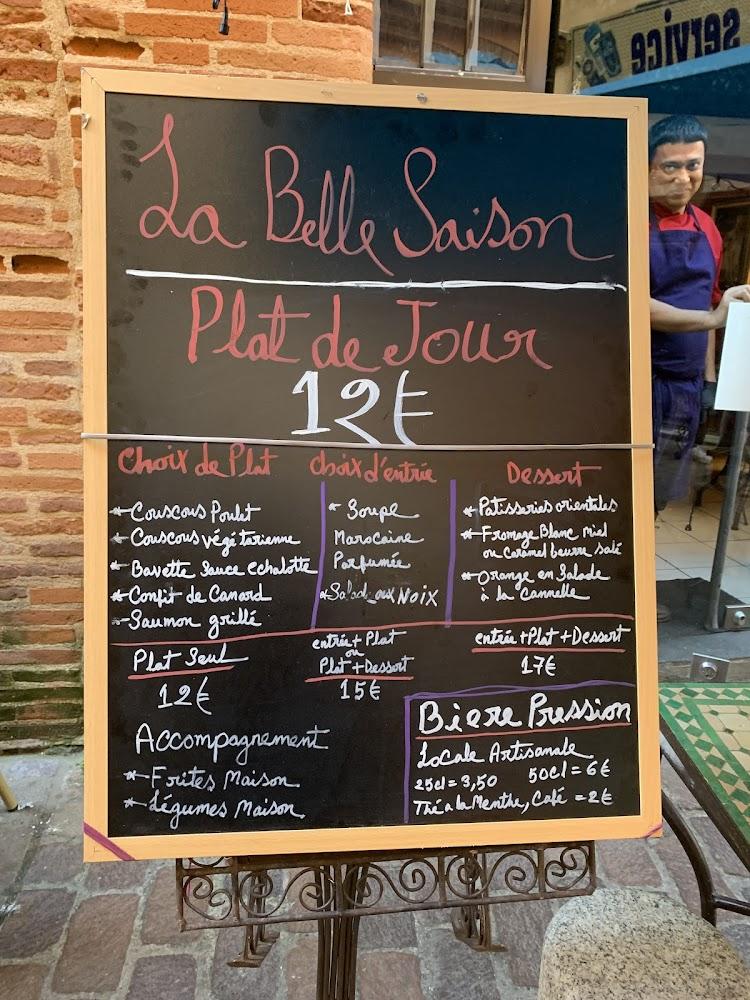 service
La Belle Saison
Plat de Jour
12€
Choix de Plat
* Couscous Poulet
* Couscous végétarienne
* Bavette Sauce echalotte
* Confit de Canard
* Saumon grillé
Choix d'entrée
* Soupe
Marocaine
Parfumée
* Salad aux Noix
Dessert
* Patisseries orientales
* Fromage Blanc miel
ou caramel beurre salé
* Orange en Salade
à la Cannelle
Plat Seul
12€
entrée + Plat
ou
Plat + Dessert
15€
entrée + Plat + Dessert
17€
Accompagnement
* Frites Maison
* Légumes Maison
Biere Pression
Locale Artisanale
25cl = 3,50 50cl = 6€
Thé a la Menthe, Café = 2€